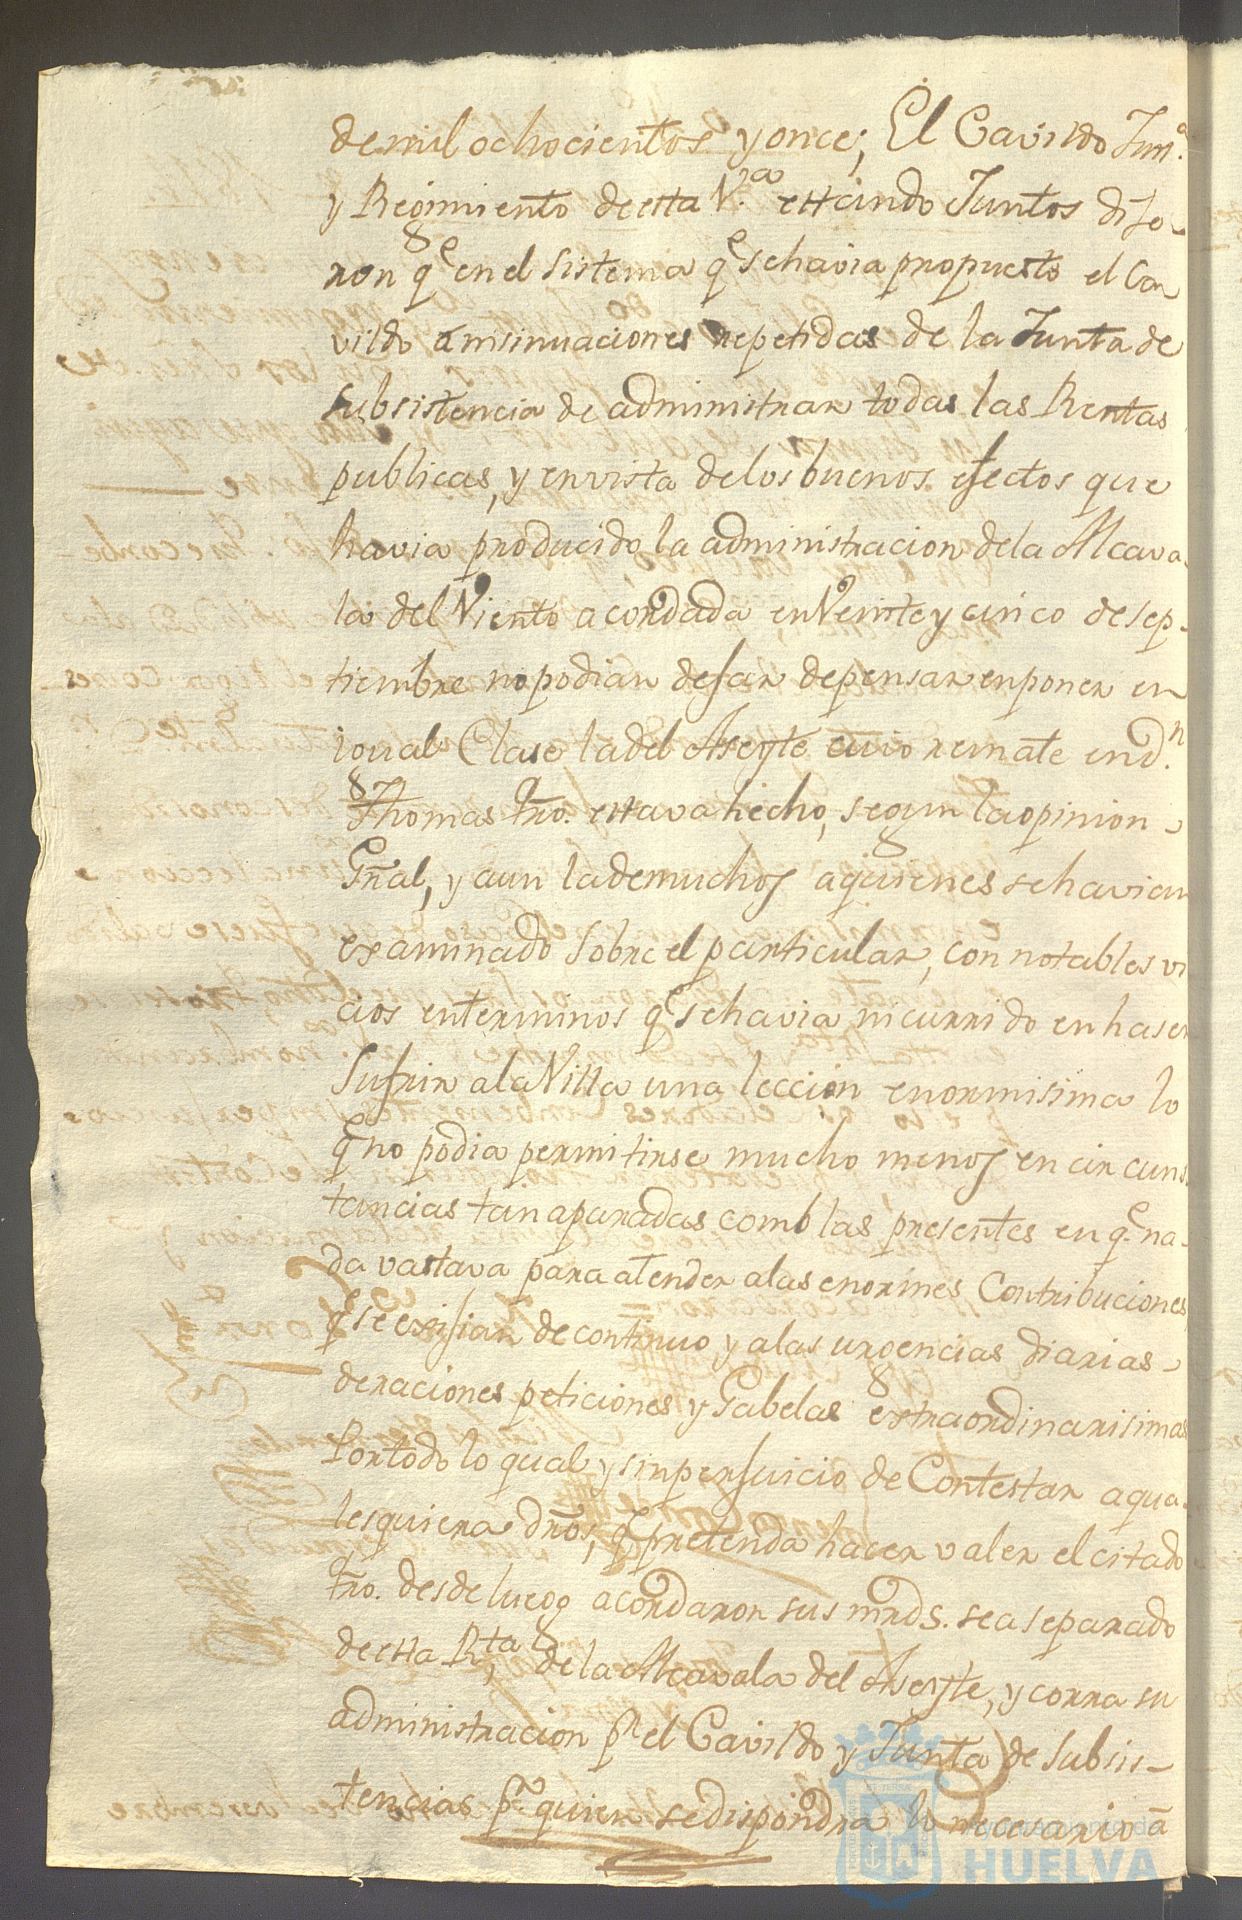 de mil ochocientos y once; El Cavildo Jus.ª
y Regimiento de esta V.ª estando Juntos dije-
ron q.e en el sistema q.e se havia propuesto el Ca
vildo á insinuaciones repetidas de la Junta de
subsistencia de administrar todas las Rentas
publicas, y en vista de los buenos efectos que
havia producido la administracion de la Alcava-
la del Viento acordada en Veinte y cinco de sep-
tiembre no podian dejar de pensar en poner en
igual Clase la del Aseyte cuio remate en d.n
Thomas tro. estava hecho, segun la opinion -
Gñal, y aun la de muchos a quienes se havian
examinado sobre el particular, con notables vi
cios en terminos q.e se havia incurrido en haser
sufrir a la Villa una leccion enormisima lo
q.e no podia permitirse mucho menos en circuns-
tancias tan apuradas como las presentes en q.e na-
da vastava para atender a las enormes Contribuciones
q.e se exijian de continuo y a las urgencias diarias -
de raciones peticiones y Gabelas extraordinarisimas
Por todo lo qual y sin perjuicio de Contestar a qua-
lesquiera dros, q.e pretenda hacer valer el citado
tro. desde luego acordaron sus mrds. sea separado
de esta R.ta de la Alcavala del Aseyte, y corra su
administracion p.r el Cavildo y Junta de Subsis-
tencias p.r quien se dispondrá lo necesario á
Ayuntamiento de
HUELVA